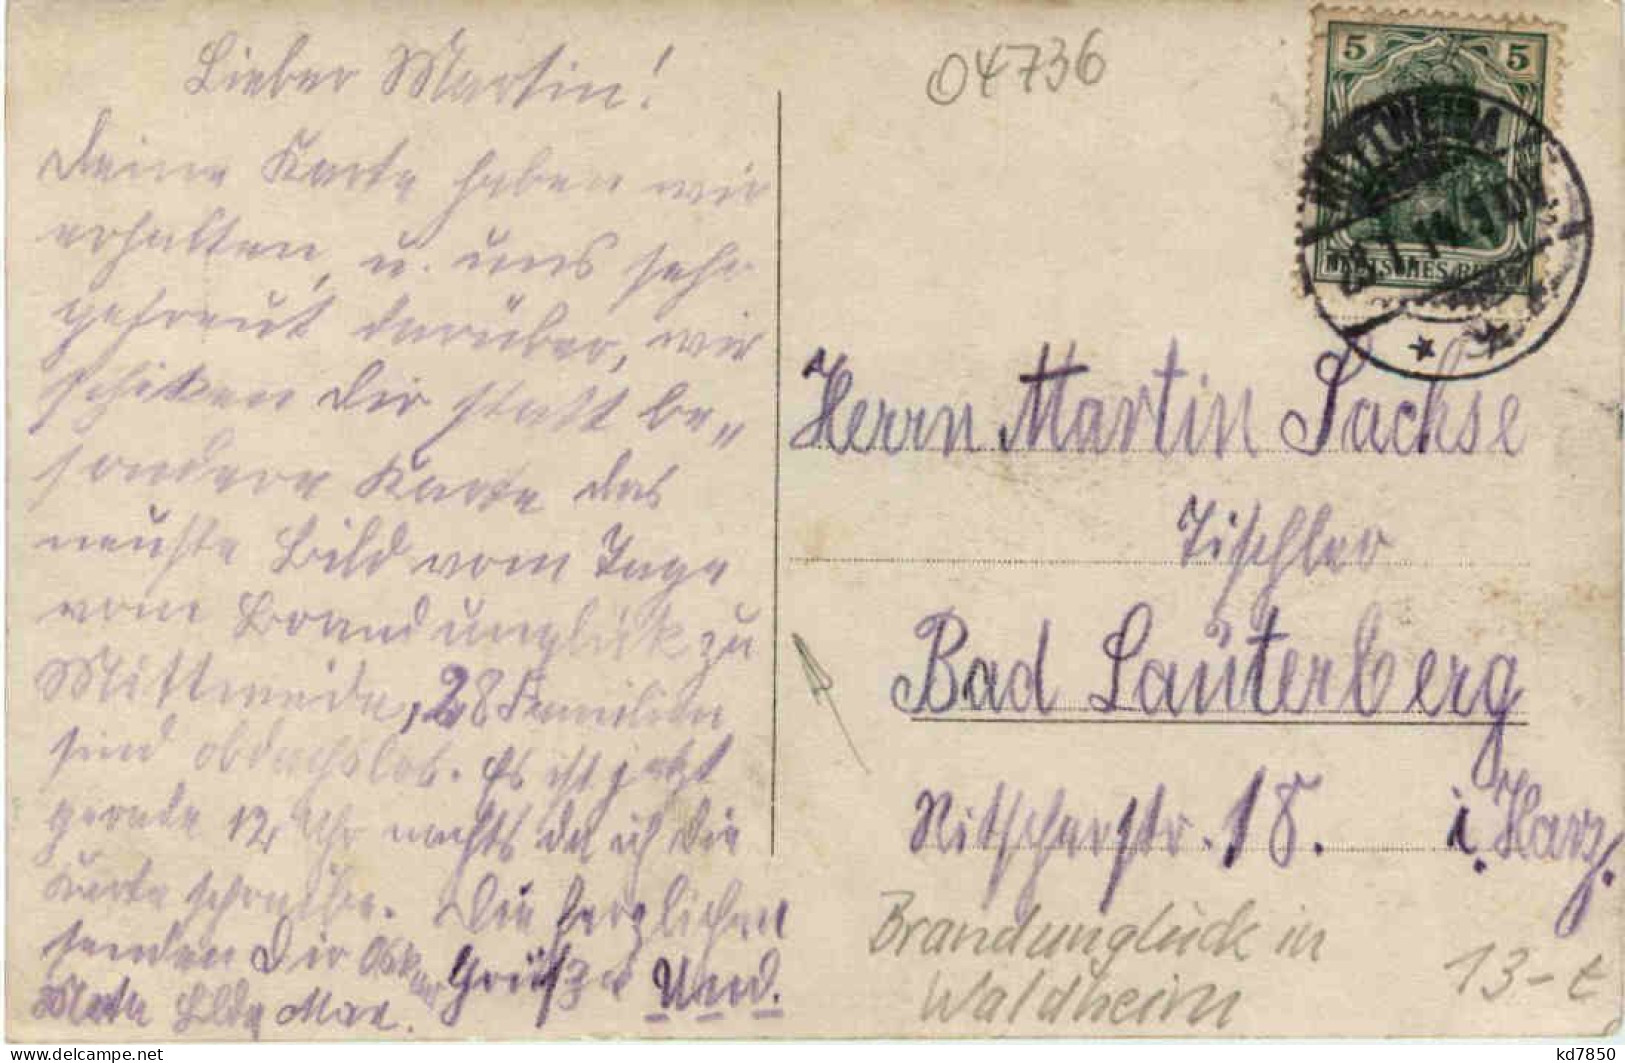 Lieber Martin!
Deine Karte haben wir
erhalten, u. uns sehr
gefreut darüber, wir
schiken Dir statt be„
sondere Karte das
neuste Bild vom Tage
vom Brandunglück zu
Mittweida, 28 Familien
sind obdachslos. Es ist jetzt
gerade 12 Uhr nachts da ich die
Karte schreibe. Die herzlichen
Grüße
senden Dir Oskar Und.
Max.
04736
5 5
MITTWEIDA
DEUTSCHES REICH
Herrn Martin Sachse
Tischler
Bad Lauterberg
Nitscherstr. 18. i. Harz.
Brandunglück in
Waldheim
13-t
kd7850